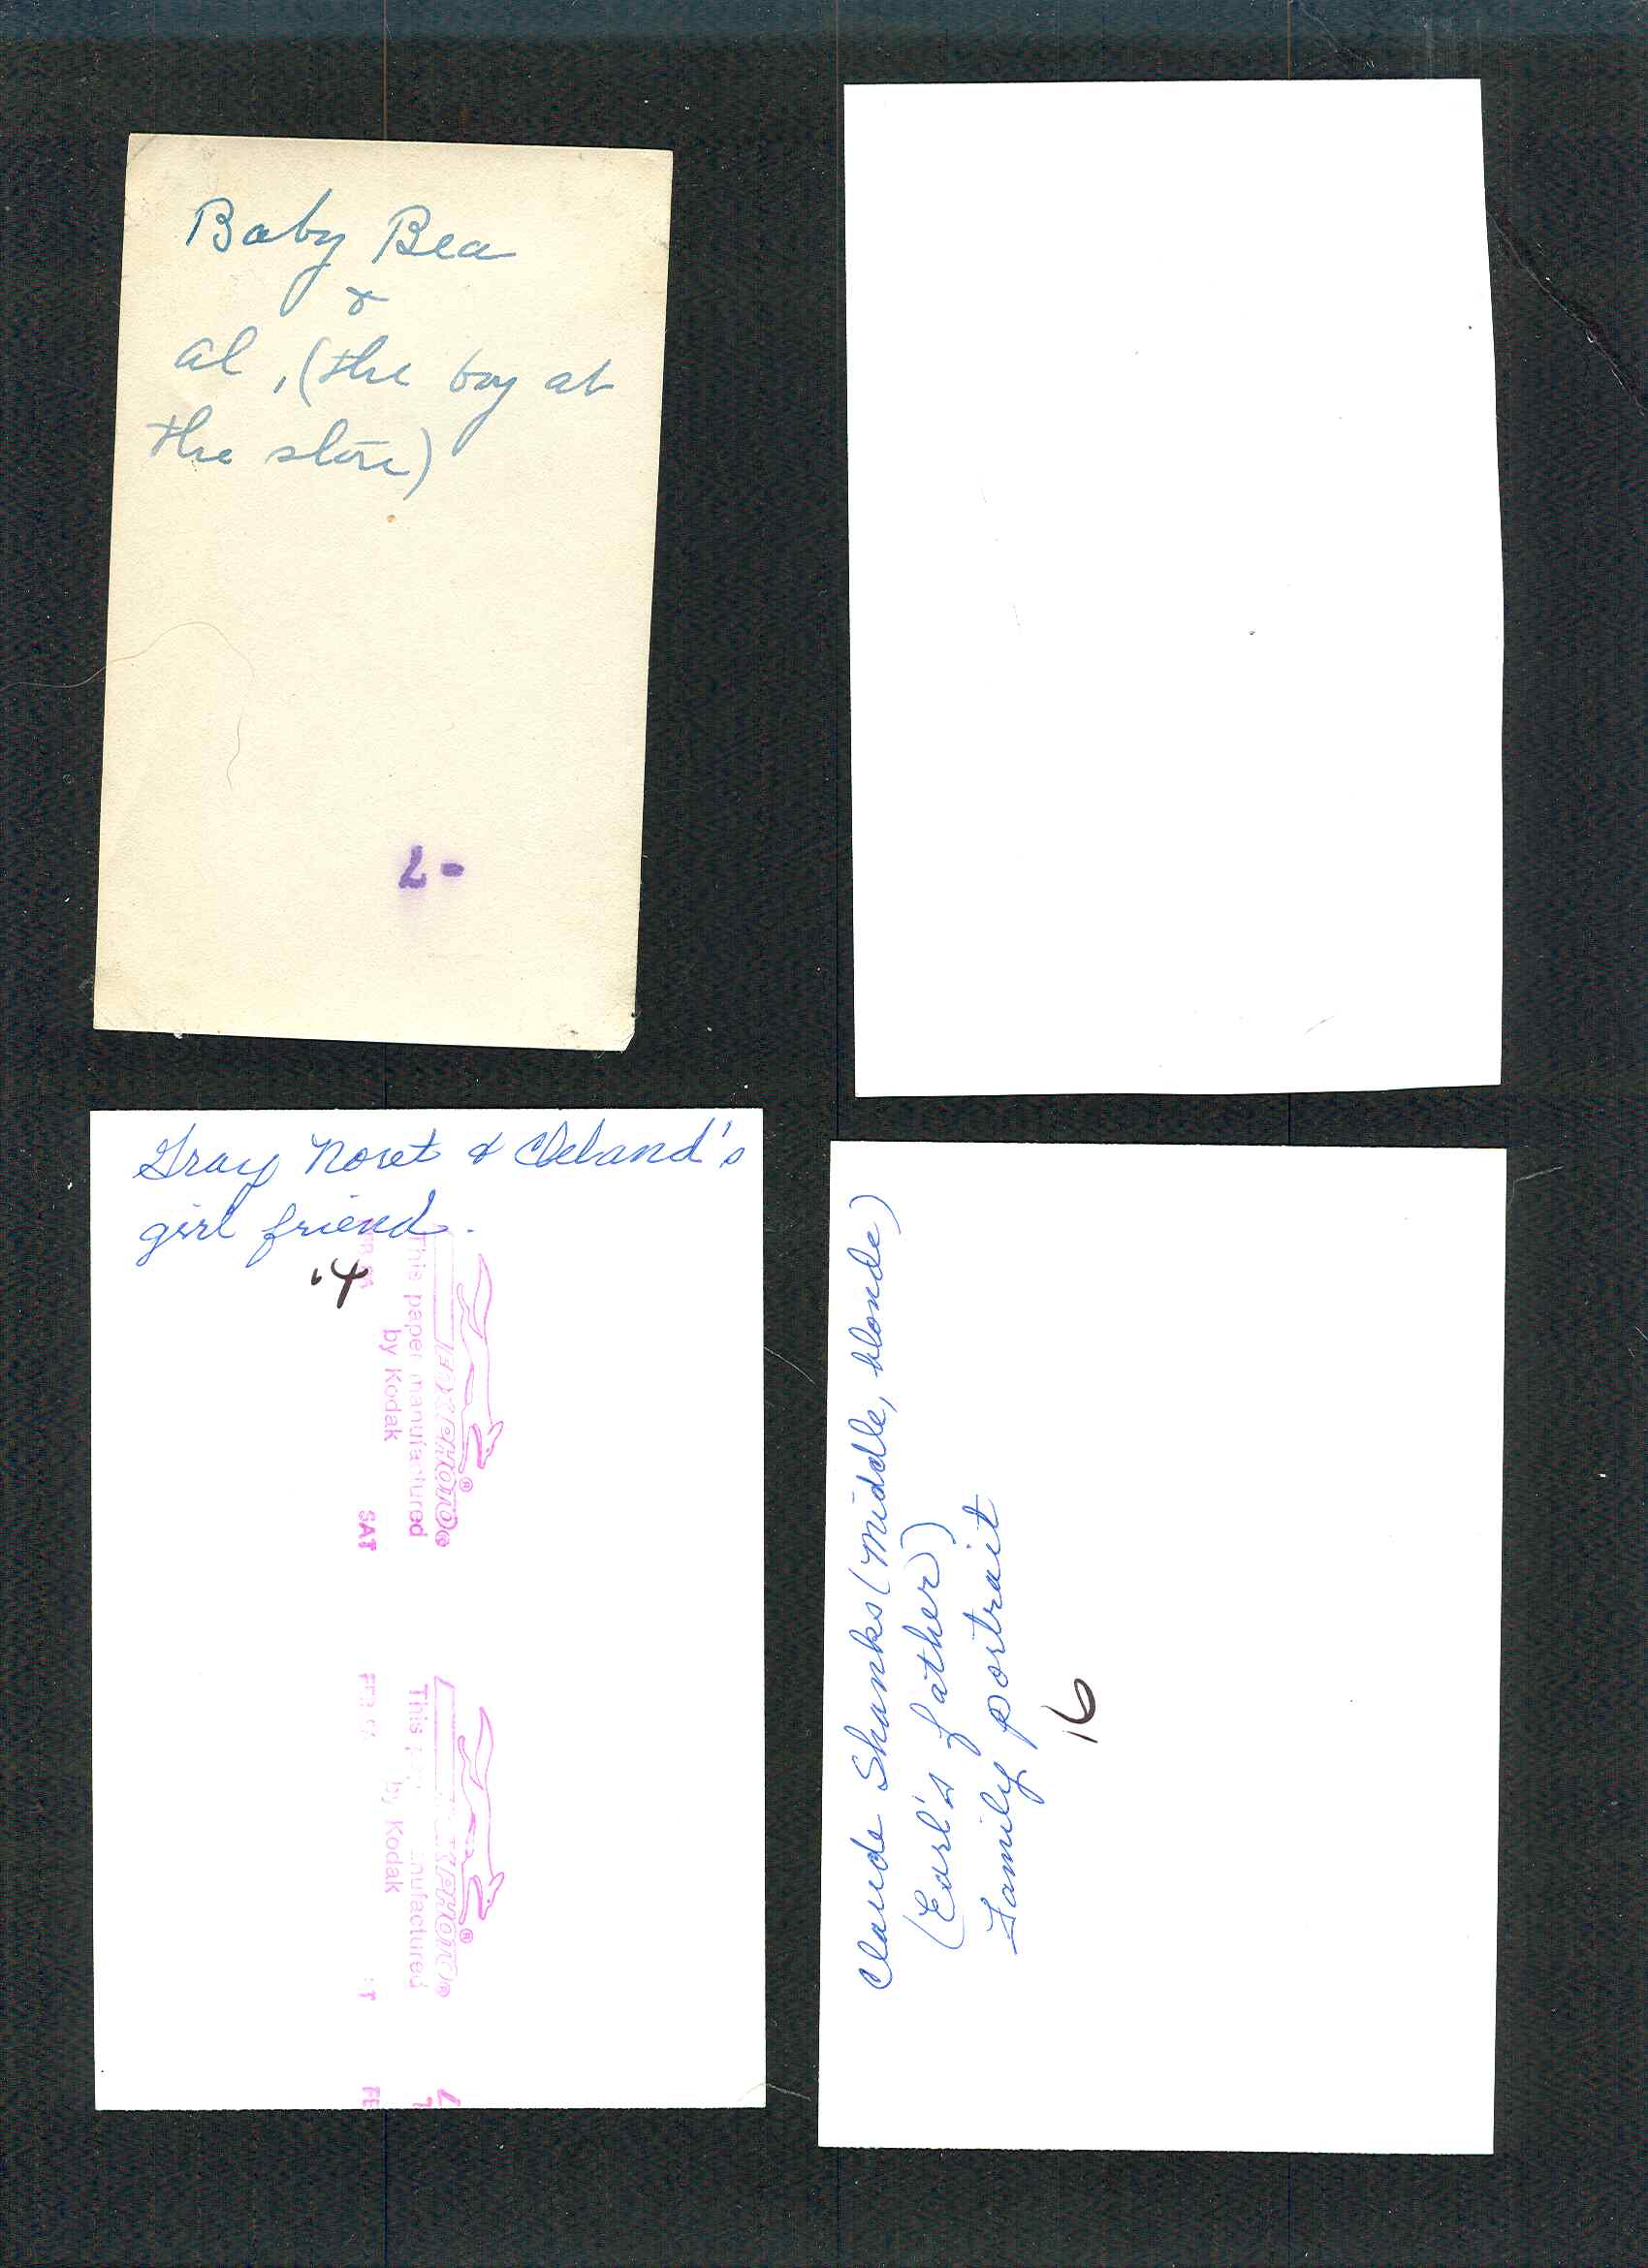 Baby Bea
&
al, (the boy at
the store)
L-
Gray Noret & Cleland's
girl friend.
'4
This paper manufactured
by Kodak
SAT
This
nufactured
by Kodak
Claude Shanks (middle, blonde)
(Earl's father)
Family portrait
16